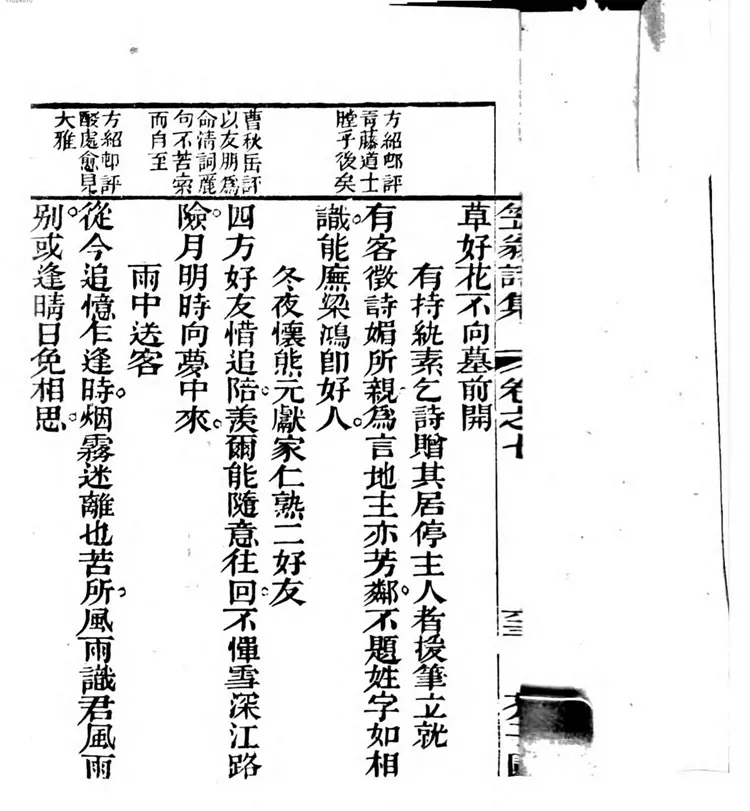 笠翁詩集
卷之七
草好花不向墓前開
有持紈素乞詩贈其居停主人者援筆立就
有客徵詩媚所親為言地主亦芳鄰不題姓字如相
識能廡梁鴻即好人
冬夜懷熊元獻家仁熟二好友
四方好友惜追陪羨爾能隨意往回不憚雪深江路
險月明時向夢中來
雨中送客
從今追憶乍逢時烟霧迷離也苦所風雨識君風雨
别或逢晴日免相思
方紹邨評
青藤道士
瞠乎後矣
曹秋岳評
以友朋為
命清詞麗
句不苦索
而自至
方紹邨評
酸處愈見
大雅